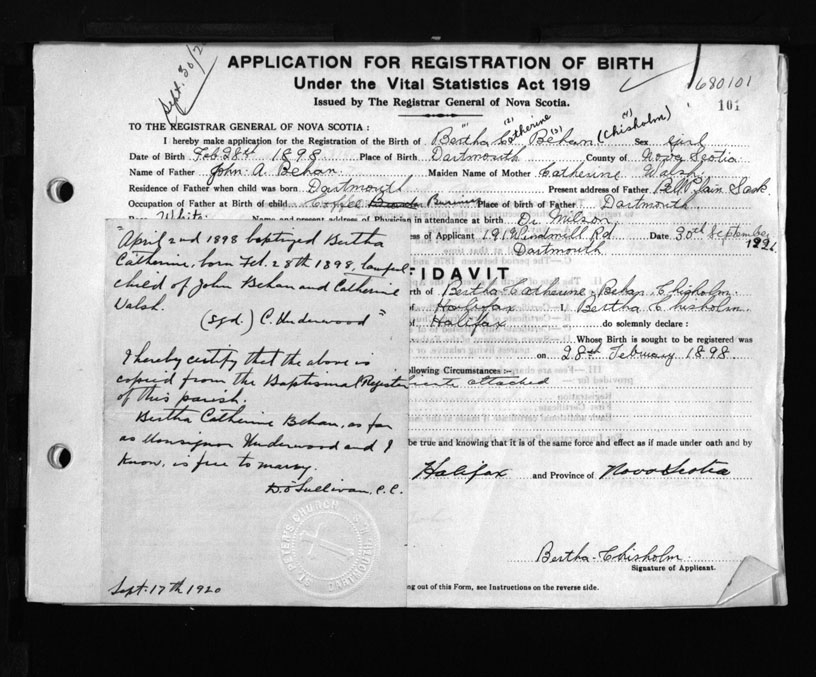 Sept. 30/2
APPLICATION FOR REGISTRATION OF BIRTH
Under the Vital Statistics Act 1919
680101
Issued by The Registrar General of Nova Scotia.
101
TO THE REGISTRAR GENERAL OF NOVA SCOTIA :
I hereby make application for the Registration of the Birth of Bertha Catherine Behan (Chisholm) Sex Girl
Date of Birth Feb 28th 1898 Place of Birth Dartmouth County of Nova Scotia
Name of Father John A. Behan Maiden Name of Mother Catherine Walsh
Residence of Father when child was born Dartmouth Present address of Father Sask
Occupation of Father at Birth of child Place of Birth of Father Dartmouth
White Name and present address of Physician in attendance at birth Dr Milson
ss of Applicant 191 Windmill Rd Date 30th September 192
Dartmouth
"April 2nd 1898 baptized Bertha
Catherine, born Feb. 28th 1898, lawful
child of John Behan and Catherine
Walsh.
(sgd.) C. Underwood"
I hereby certify that the above is
copied from the Baptismal Register
of this parish.
Bertha Catherine Behan, as far
as Monsignor Underwood and I
know, is free to marry.
D. O'Sullivan, C.C.
ST. PETER'S CHURCH
DARTMOUTH
Sept. 17th 1920
FIDAVIT
rth of Bertha Catherine Behan Chisholm
of Halifax I Bertha Chisholm
of Halifax do solemnly declare :
Whose Birth is sought to be registered was
on 28th February 1898
ollowing Circumstances :—
attached
be true and knowing that it is of the same force and effect as if made under oath and by
Halifax and Province of Nova Scotia
Bertha Chisholm
Signature of Applicant.
ng out of this Form, see Instructions on the reverse side.